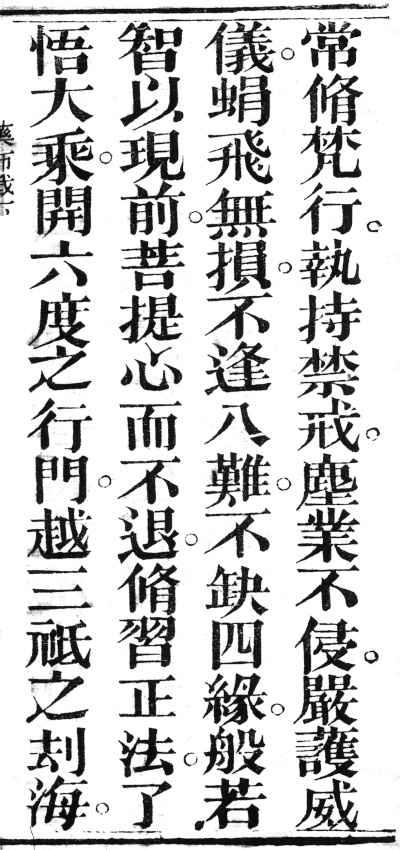 常脩梵行。執持禁戒。塵業不侵。嚴護威
儀。蜎飛無損。不逢八難。不缺四緣。般若
智以現前。菩提心而不退。脩習正法。了
悟大乘。開六度之行門。越三祇之刦海。
藥師懺六